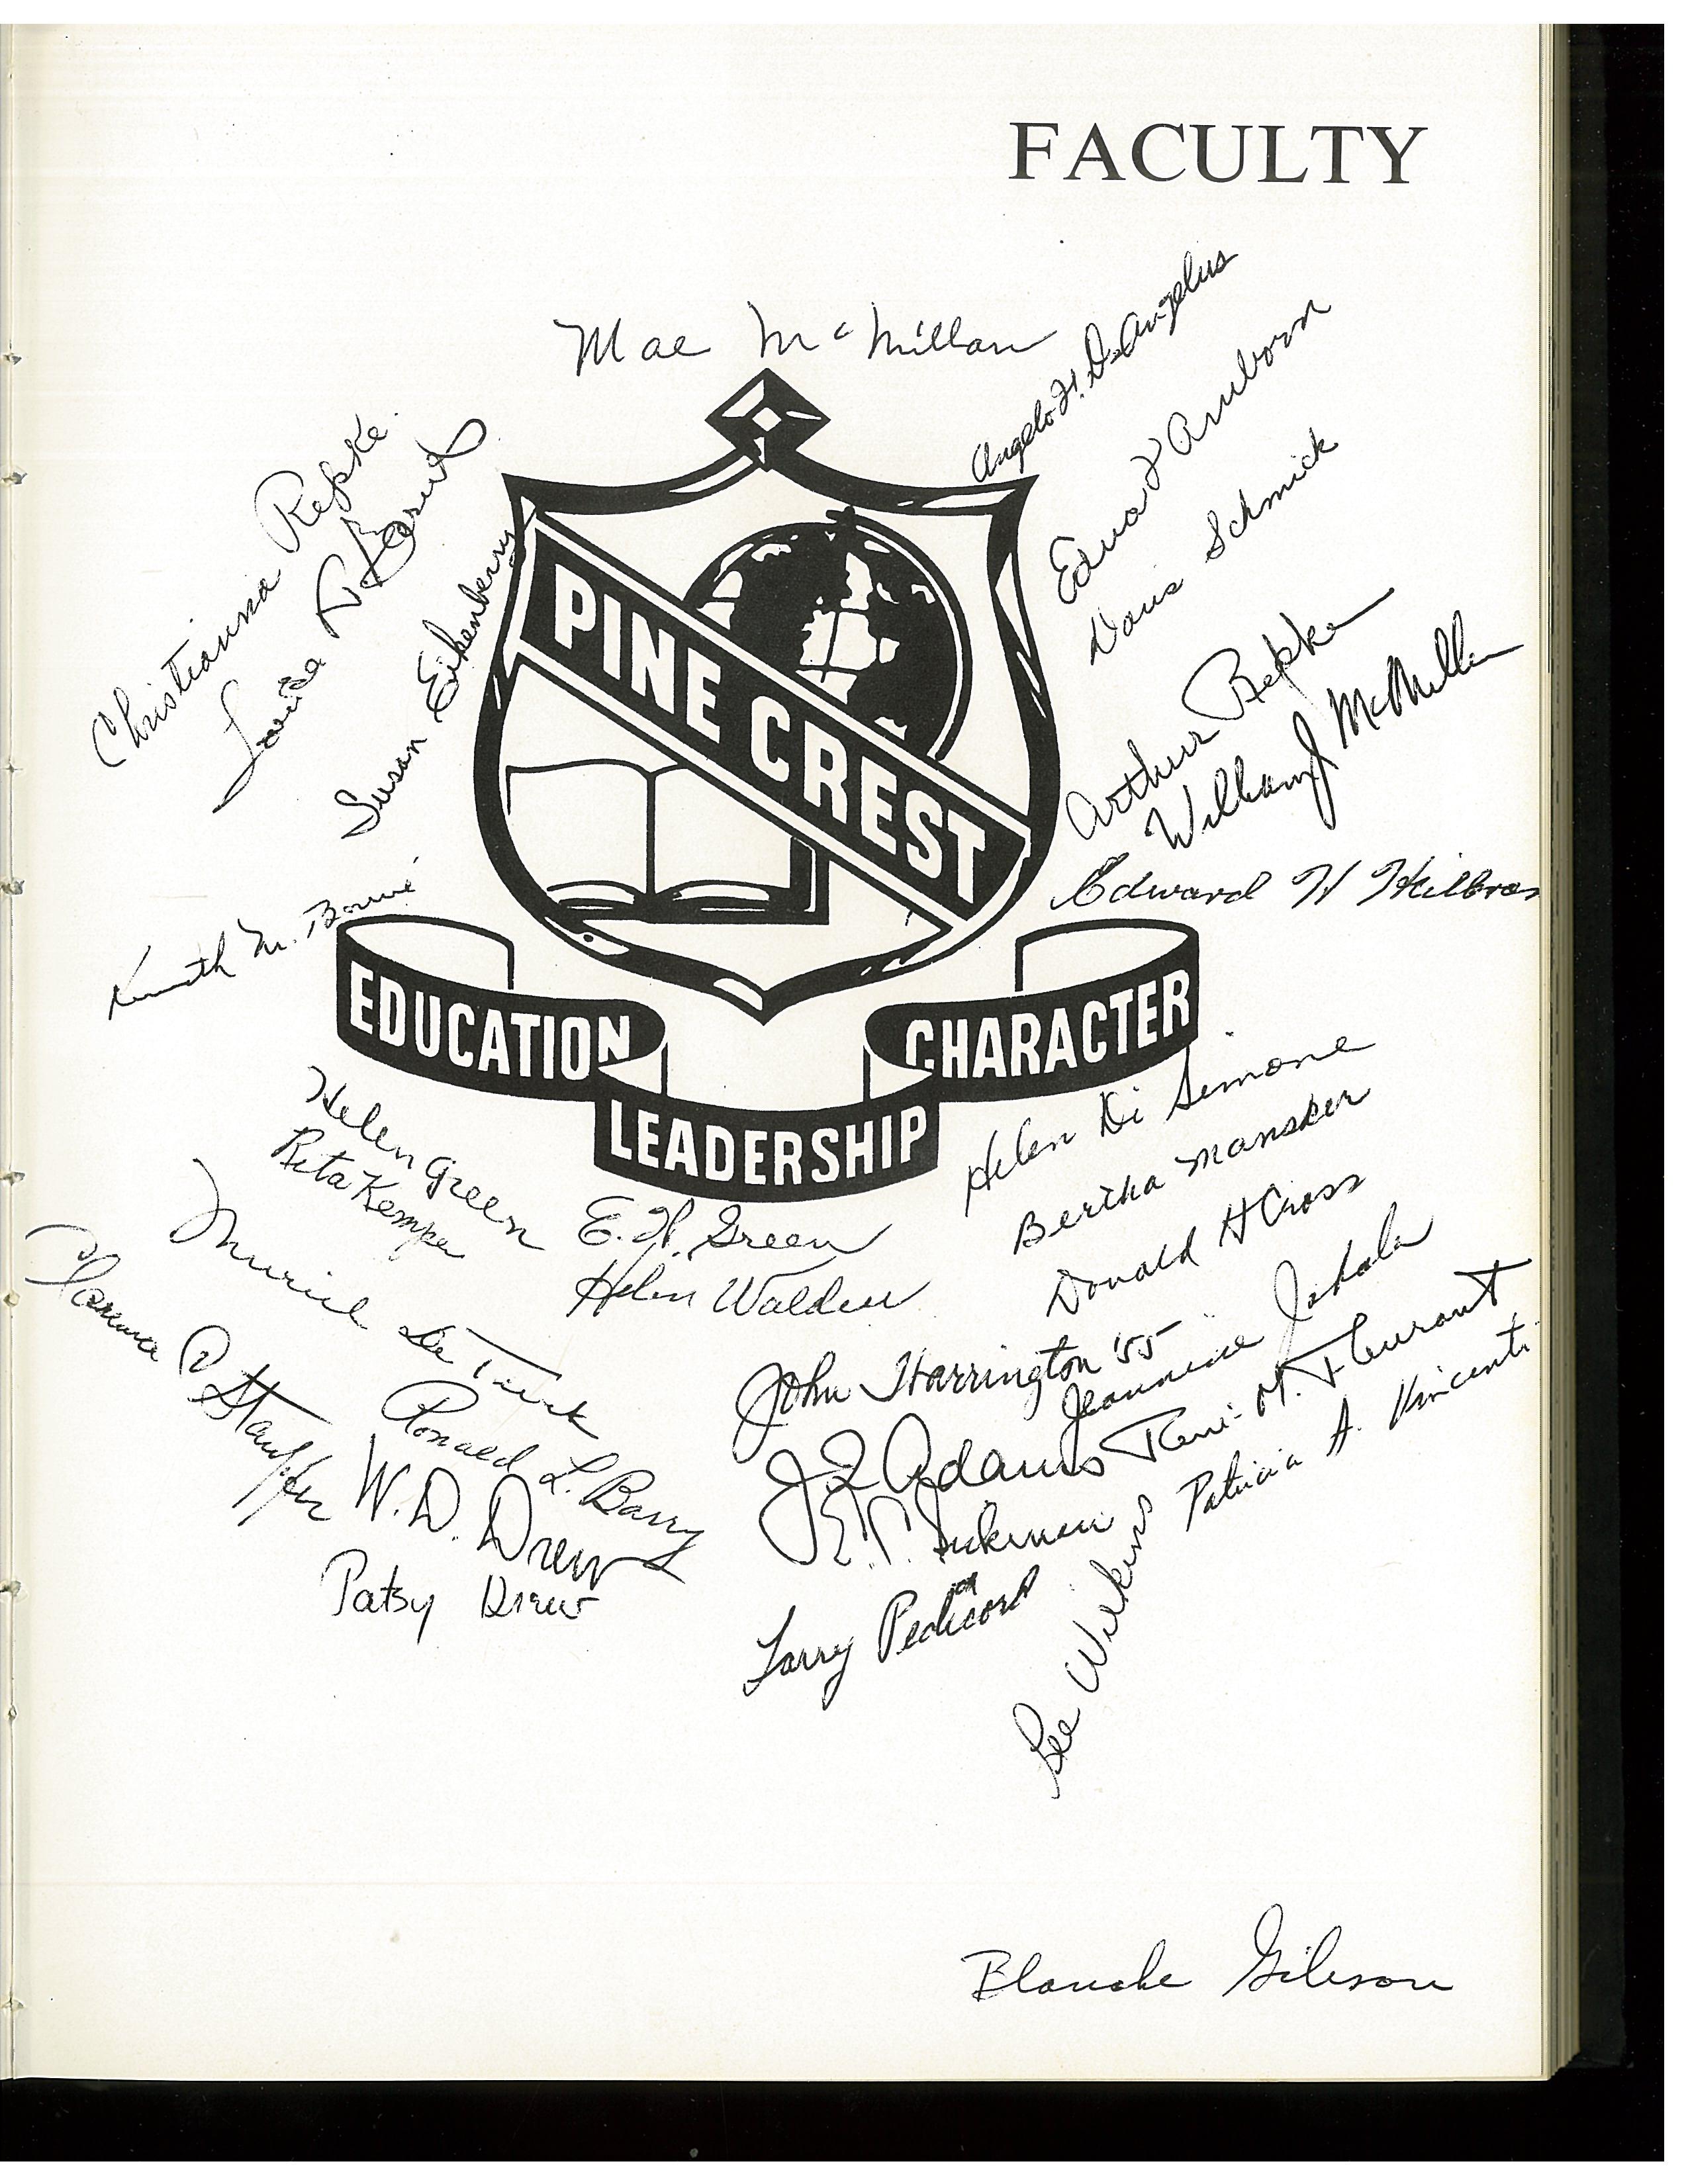 FACULTY
Mae McMillan
Angelo F. DeAngelus
Edward Arnborn
Doris Schmick
Christianna Repke
Louise
Susan Eikenberry
PINE CREST
Arthur Repke
William J McMillan
Edward H
Kenneth M.
EDUCATION
CHARACTER
LEADERSHIP
Helen Di Simone
Bertha Mansker
Donald H Cross
Helen Green
Rita Kemper
E. H. Green
Helen Walden
Muriel De Turk
D Stauffer
Ronald L. Barry
W. D. Drew
Patsy Drew
John Harrington '55
Jeannine Jahala
J Q Adams
René M. Fleurant
Patricia A. Vincenti
E. P.
Larry Pedicord
Lee Wilkins
Blanche Gibson